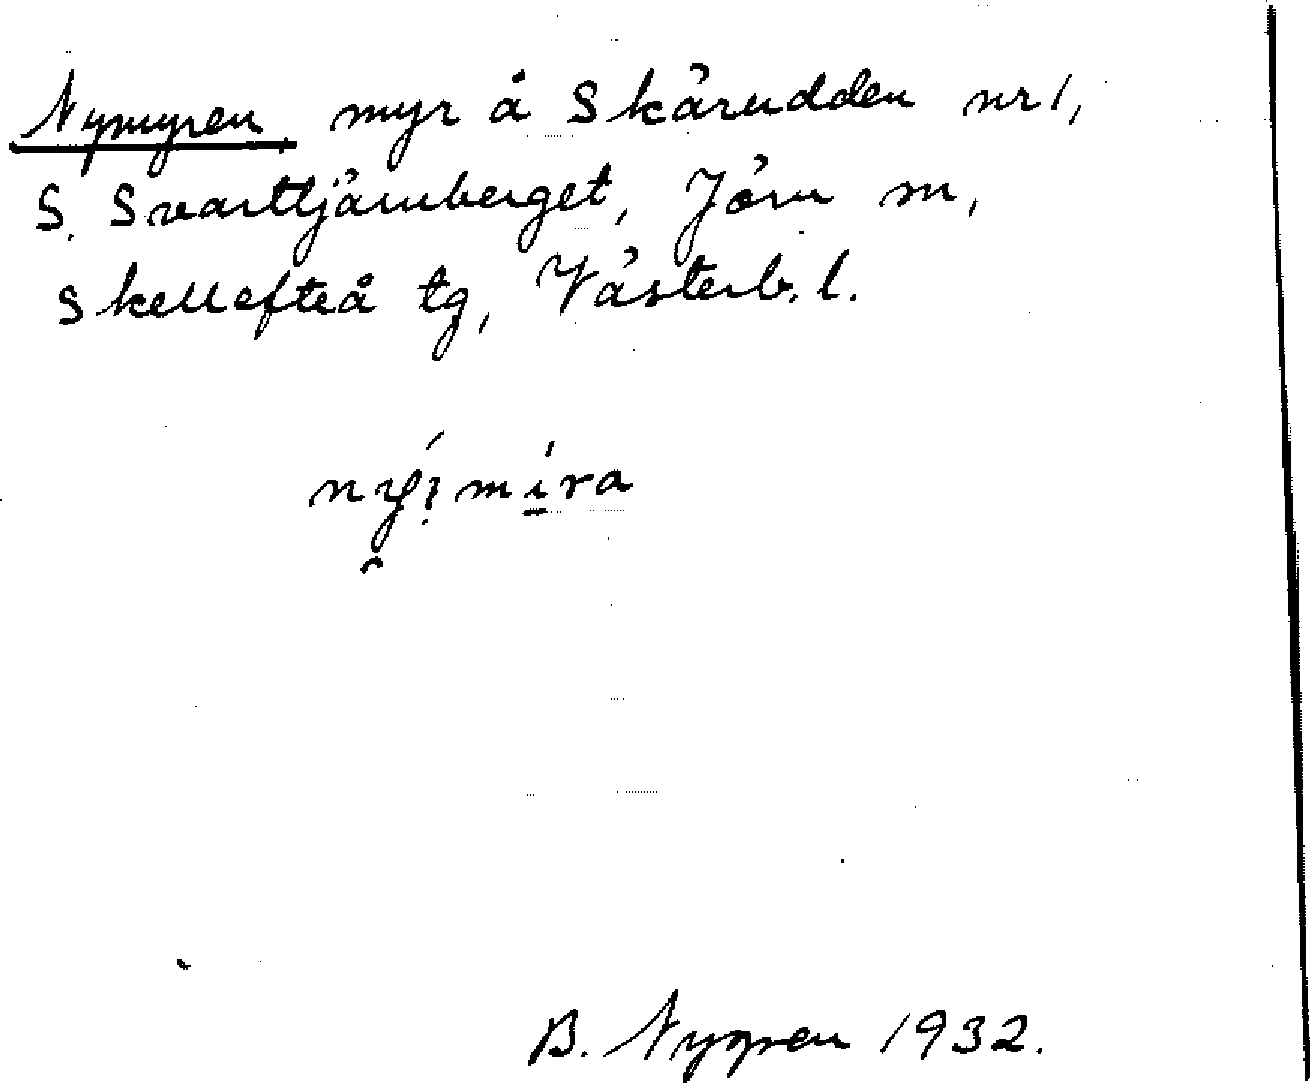 Nymyren, myr å Skärudden nr 1,
S. Svarttjärnberget, Jörn sn,
Skellefteå tg, Västerb. l.
B. Nygren 1932.